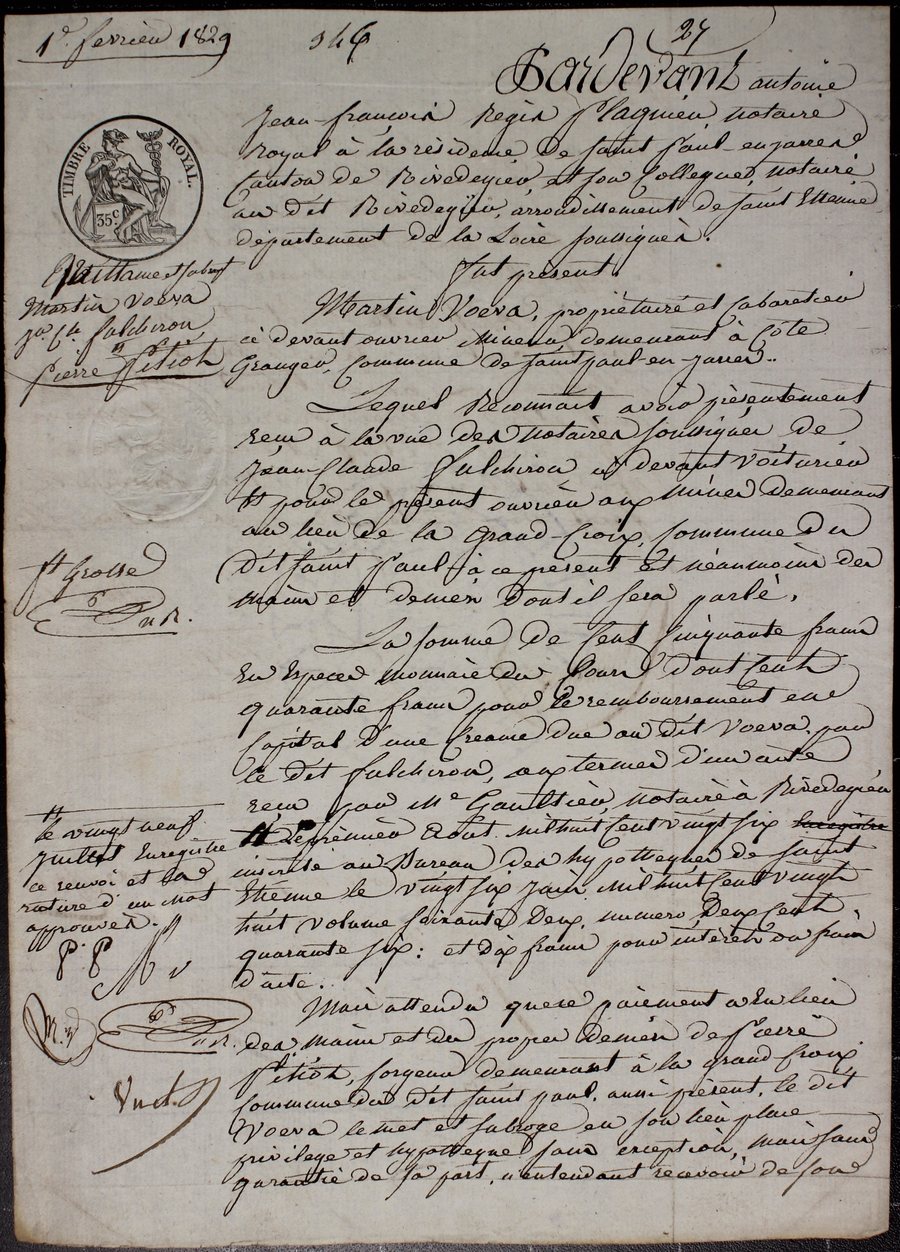 1er fevrier 1829
346
27
Pardevant antoine
Jean-françois Regis flaguieu notaire
Royal à la résidence de Saint Paul-en-Jarrest
Canton de Rivedegier, et son Collegue, notaire
au dit Rivedegier, arrondissement de Saint Etienne
département de la Loire soussignés.
TIMBRE ROYAL.
35 c
Quittance et subrog
Martin Voeva
Jn. Cde. fulchiron
pierre Pitiot
Fut présent.
Martin Voeva, propriétaire et Cabaretier
ci devant ouvrier Mineur, demeurant à Côte
Granger, Commune de Saint paul-en-Jarrest.
Lequel Reconnait avoir présentement
recu à la vue des notaires soussignés de
Jean-Claude fulchiron ci devant Voiturier
Et pour le présent ouvrier aux Mines demeurant
au lieu de la Grand-Croix, Commune du
Dit Saint Paul à ce présent Et néanmoins des
mains et deniers dont il sera parlé.
ft Grosse
La Somme de Cent Cinquante francs
En Especes monnaie du Cours dont Cent
quarante francs pour le remboursement en
Capital d'une Creance due au dit Voeva, par
le dit fulchiron, aux termes d'un acte
recu par Me Gaultier, notaire à Rivedegier
le premier Août mil huit Cent vingt six
inscrite au Bureau des hypotheques de Saint
Etienne le Vingt six Juin Mil huit Cent vingt
huit volume soixante Deux, numero Deux Cent
quarante six: et dix francs pour intérêts ou frais
d'acte.
le vingt neuf
Juillet Enregistré
ce renvoi et la
rature d'un Mot
approuvés.
P. P M v
M. v
Mais attendu que ce paiement a Eu lieu
des mains et des propres deniers de Pierre
Pitiot, forgeur demeurant à la grand Croix
Commune du dit Saint paul, aussi présent, le dit
Voeva le met et subroge en son lieu place
privilege et hypotheque sans exception, mais sans
garantie de sa part, n'entendant recevoir de son